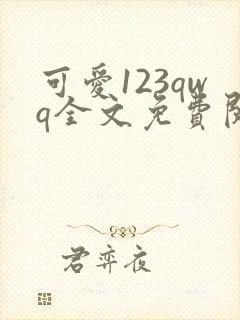 可愛123qw
q全文免費閱
君弈夜